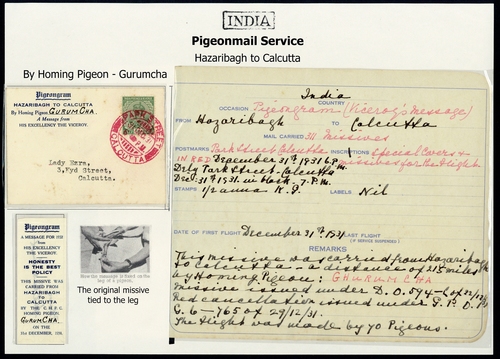 INDIA
Pigeonmail Service
Hazaribagh to Calcutta
By Homing Pigeon - Gurumcha
Pigeongram
HAZARIBAGH TO CALCUTTA
By Homing Pigeon GURUMCHA.
A Message from
HIS EXCELLENCY THE VICEROY.
PARK STREET
CALCUTTA
Lady Ezra,
3, Kyd Street,
Calcutta.
Pigeongram
A MESSAGE FOR
from
HIS EXCELLENCY
THE VICEROY
HONESTY
IS THE BEST
POLICY
THIS MESSAGE WAS
CARRIED FROM
HAZARIBAGH
TO
CALCUTTA
HOMING PIGEON:
GURUMCHA.
on the
31st December,
How the message is fixed on the
leg of a pigeon.
The original missive
tied to the leg
India
COUNTRY
OCCASION Pigeongram (Viceroy's Message)
FROM Hazaribagh TO Calcutta
MAIL CARRIED 311 Missives
POSTMARKS Park Street Calcutta INSCRIPTIONS Special Covers &
IN RED December 31st 1931 6 P.M. missives for the flight.
Dely Park Street - Calcutta
Dec 31st 1931. in black. 7. P.M.
STAMPS 1/2 anna K. G LABELS Nil
DATE OF FIRST FLIGHT December 31st 1931 LAST FLIGHT
(IF SERVICE SUSPENDED)
REMARKS
This missive was carried from Hazaribagh
to Calcutta - a distance of 215 miles
by Homing Pigeon: GHURUMCHA
missive issued under D. O. 594-( of 22/12/31
Red cancellation issued under G. P. O. No
C. 6-765 of 29/12/31.
The flight was made by 70 Pigeons.